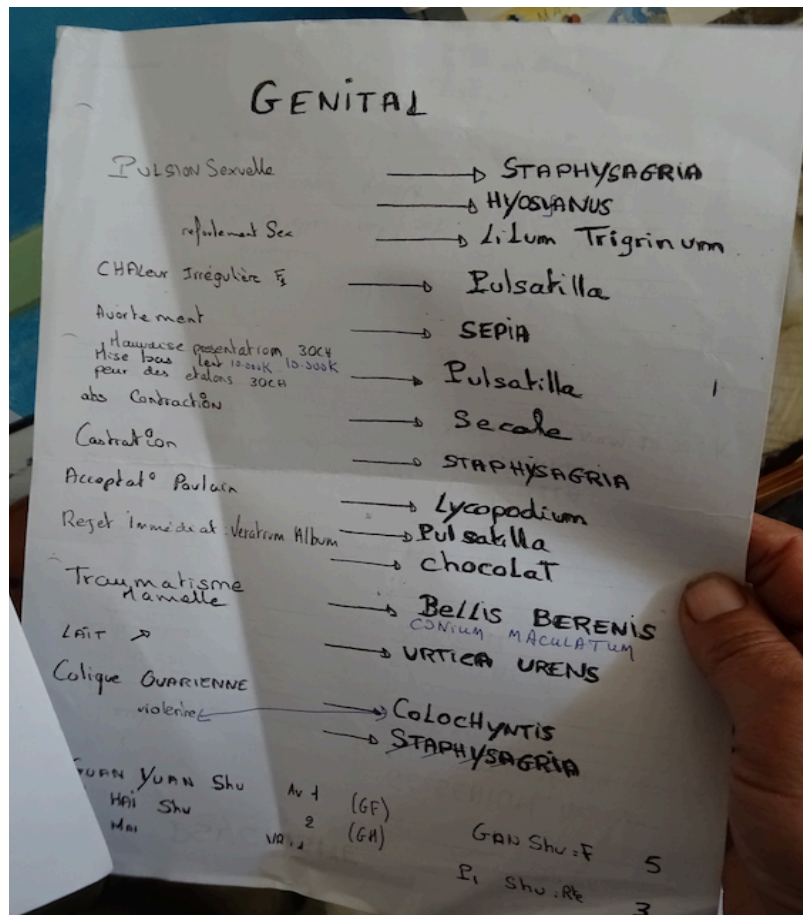 GENITAL
PULSION Sexuelle → STAPHYSAGRIA
→ HYOSYANUS
refoulement Sex → LiLum Trigrinum
CHALeur Irrégulière → Pulsatilla
Avortement → SEPIA
Mauvaise presentation 30CH
Mise bas lent 10.000K 10.000K → Pulsatilla 1
peur des etalons 30CH
abs Contraction → Secale
Castration → STAPHYSAGRIA
Acceptat° Poulain → Lycopodium
Rejet immédiat: Veratrum Album → Pulsatilla
→ chocolaT
Traumatisme → BeLLis BERENIS
Mamelle CONIUM MACULATUM
LAIT ↗ → URTICA URENS
Colique OVARIENNE → COLOCHYNTIS
→ STAPHYSAGRIA
YUAN Shu Av 1 (GF)
HAI Shu 2 (GM) GAN Shu: F 5
Shu: Rte 3